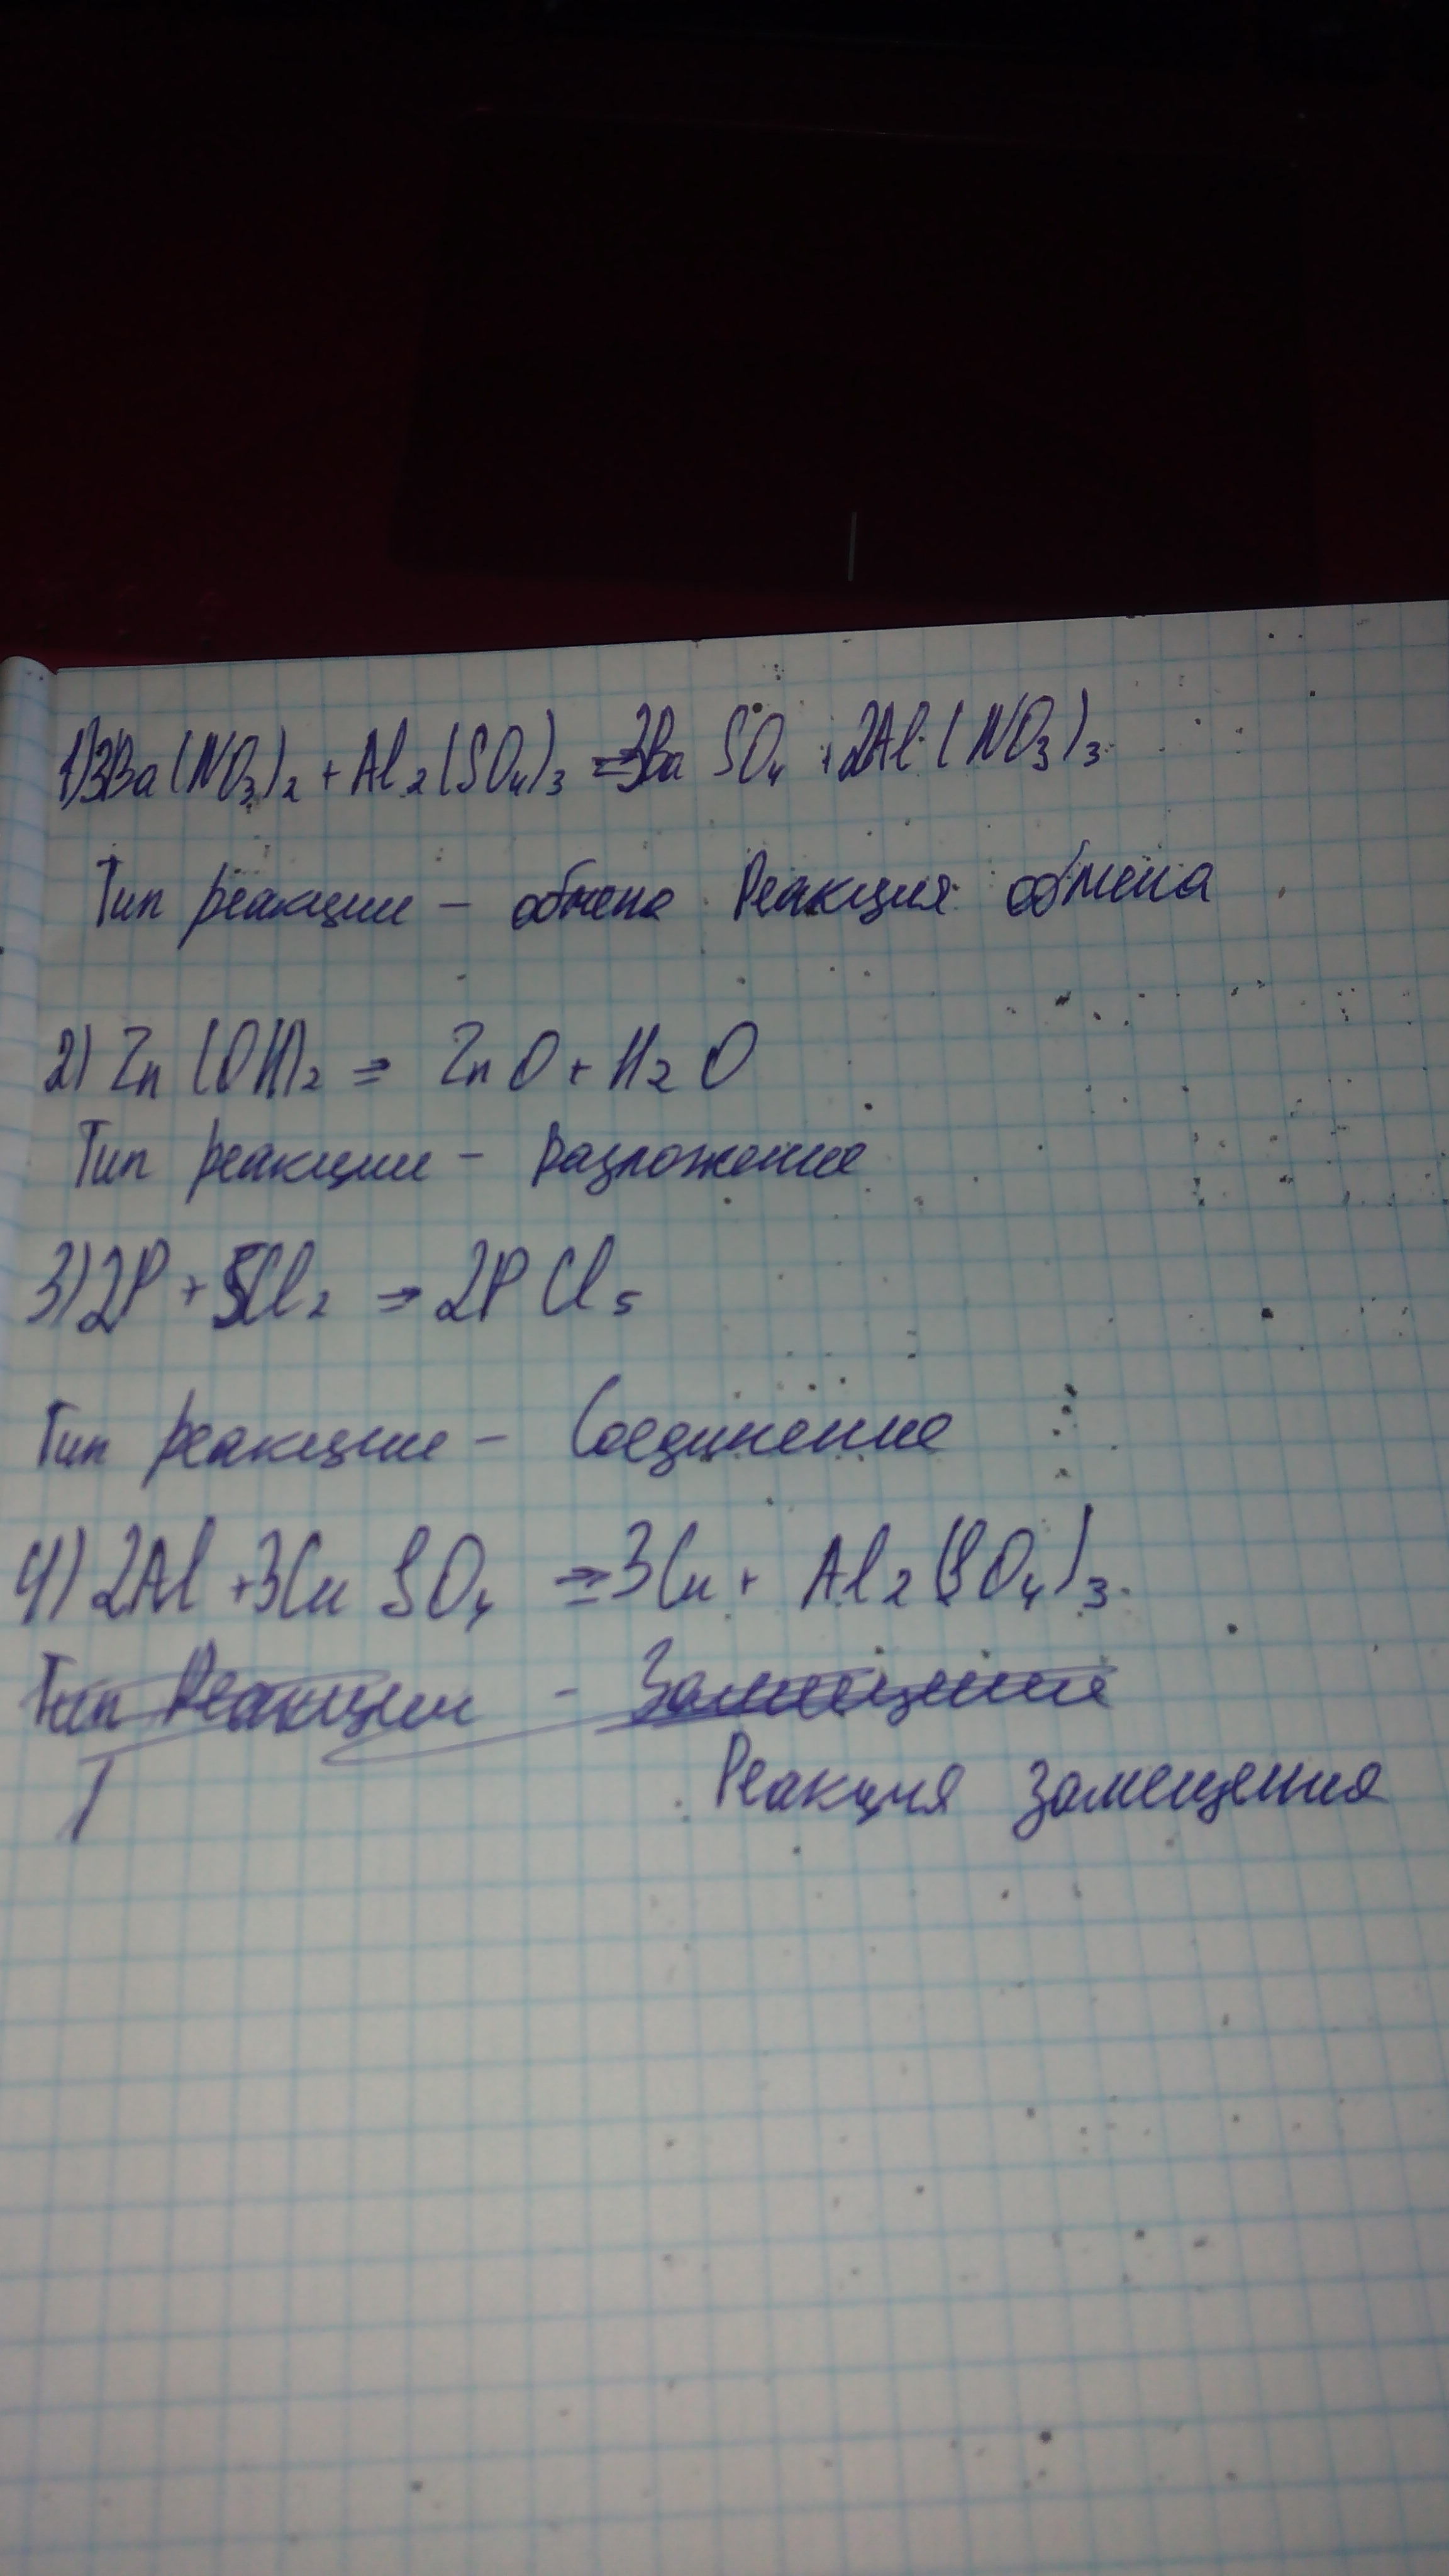 1) 3Ba(NO₃)₂ + Al₂(SO₄)₃ ⇒ 3Ba SO₄ + 2Al(NO₃)₃
Тип реакции – обмена Реакция обмена
2) Zn (OH)₂ ⇒ ZnO + H₂O
Тип реакции – Разложение
3) 2P + 5Cl₂ → 2P Cl₅
Тип реакции – Соединение
4) 2Al + 3Cu SO₄ ⇒ 3Cu + Al₂(SO₄)₃
Тип Реакции – Замещение
Т Реакция замещения